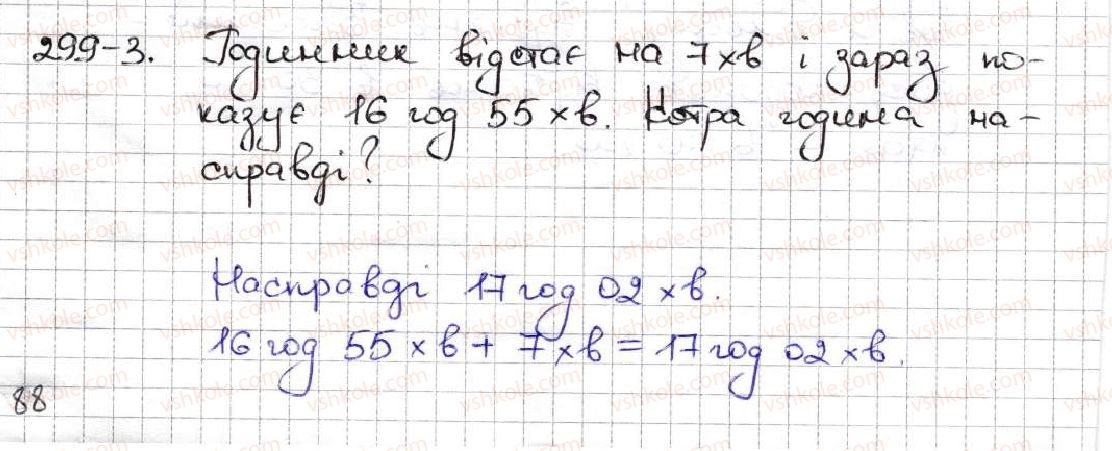 299-3. Годинник відстає на 7 хв і зараз по-
казує 16 год 55 хв. Котра година на-
справді?
Насправді 17 год 02 хв.
16 год 55 хв + 7 хв = 17 год 02 хв.
88